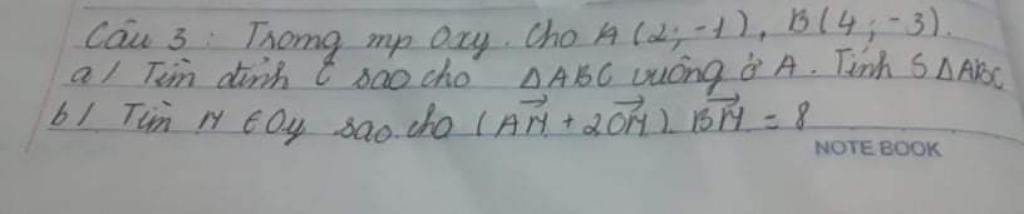 Câu 3 : Trong mp Oxy. Cho A (2; -1), B(4; -3).
a/ Tìm đỉnh C sao cho ΔABC vuông ở A. Tính SΔABC
b/ Tìm M ∈ Oy sao cho (AM⃗ + 2OM⃗). BM⃗ = 8
NOTE BOOK